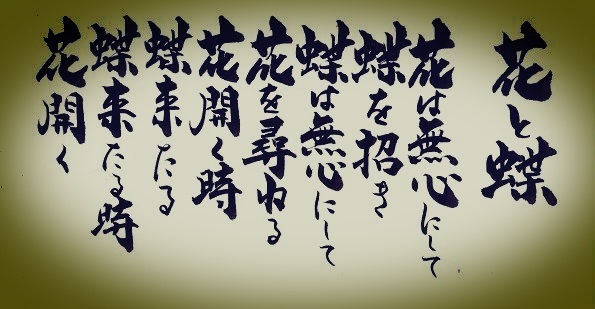 花と蝶
花は無心にして
蝶を招き
蝶は無心にして
花を尋ねる
花開く時
蝶来たる
蝶来たる時
花開く